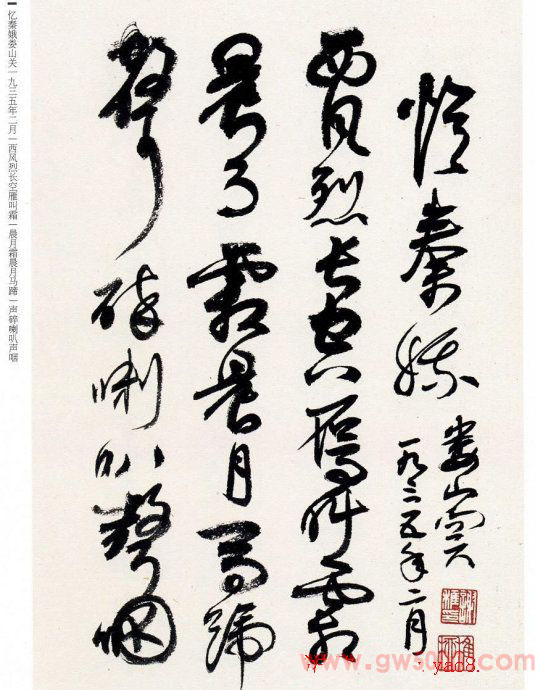 憶秦娥
婁山關
一九三五年二月
西風烈長空雁叫霜
晨月霜晨月馬蹄
聲碎喇叭聲咽
忆秦娥娄山关|一九三五年二月|西风烈长空雁叫霜|晨月霜晨月马蹄|声碎喇叭声咽
yac8.